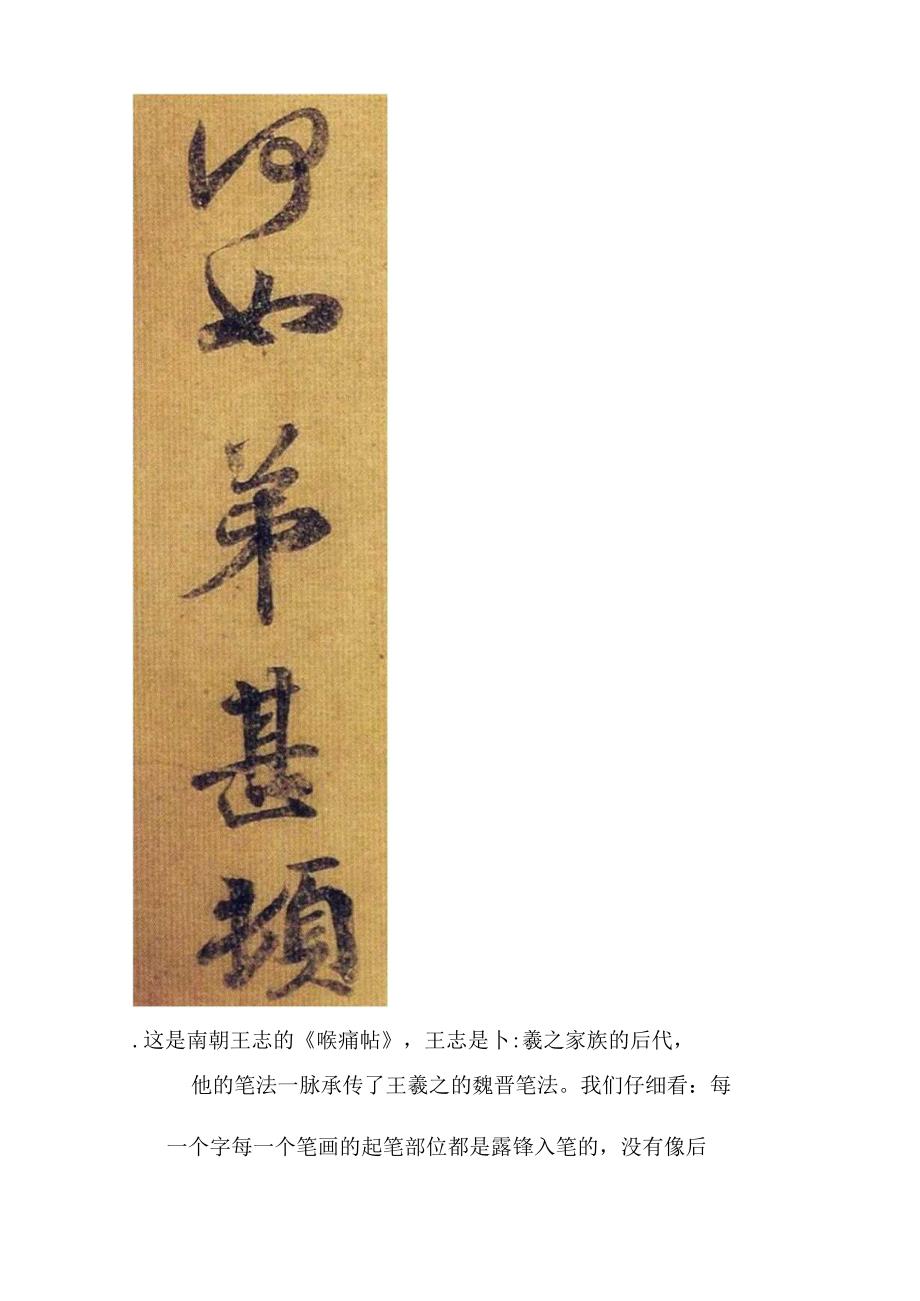 何
如
弟
甚
頓
.这是南朝王志的《喉痛帖》，王志是卜:羲之家族的后代，
他的笔法一脉承传了王羲之的魏晋笔法。我们仔细看：每
一个字每一个笔画的起笔部位都是露锋入笔的，没有像后